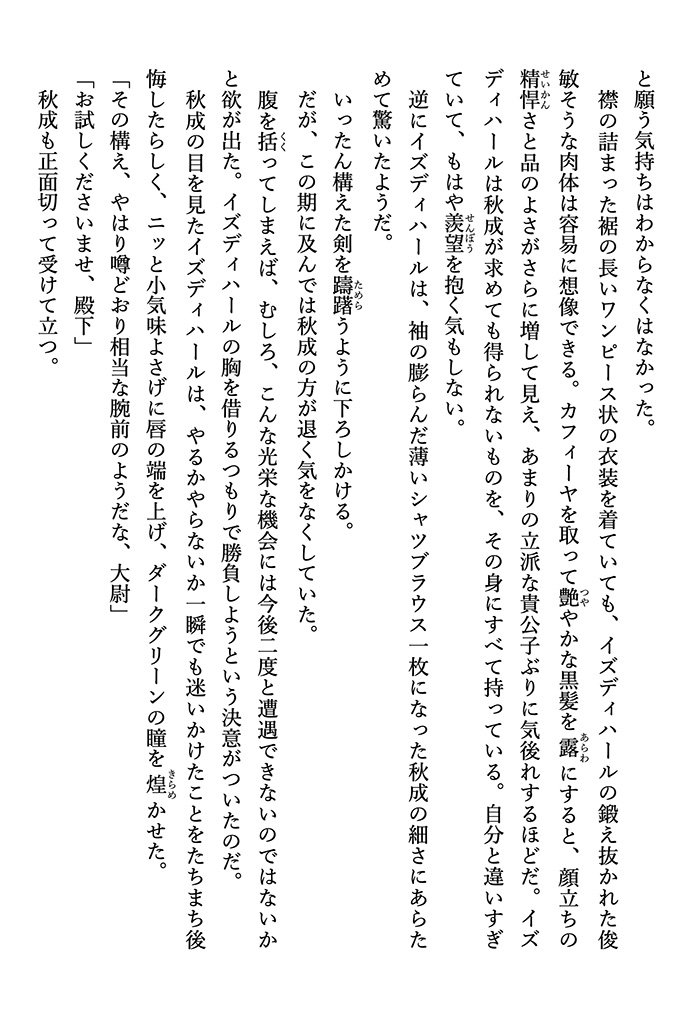 と願う気持ちはわからなくはなかった。
　襟の詰まった裾の長いワンピース状の衣装を着ていても、イズディハールの鍛え抜かれた俊
敏そうな肉体は容易に想像できる。カフィーヤを取って艶やかな黒髪を露にすると、顔立ちの
精悍さと品のよさがさらに増して見え、あまりの立派な貴公子ぶりに気後れするほどだ。イズ
ディハールは秋成が求めても得られないものを、その身にすべて持っている。自分と違いすぎ
ていて、もはや羨望を抱く気もしない。
　逆にイズディハールは、袖の膨らんだ薄いシャツブラウス一枚になった秋成の細さにあらた
めて驚いたようだ。
　いったん構えた剣を躊躇うように下ろしかける。
　だが、この期に及んでは秋成の方が退く気をなくしていた。
　腹を括ってしまえば、むしろ、こんな光栄な機会には今後二度と遭遇できないのではないか
と欲が出た。イズディハールの胸を借りるつもりで勝負しようという決意がついたのだ。
　秋成の目を見たイズディハールは、やるかやらないか一瞬でも迷いかけたことをたちまち後
悔したらしく、ニッと小気味よさげに唇の端を上げ、ダークグリーンの瞳を煌かせた。
「その構え、やはり噂どおり相当な腕前のようだな、大尉」
「お試しくださいませ、殿下」
　秋成も正面切って受けて立つ。